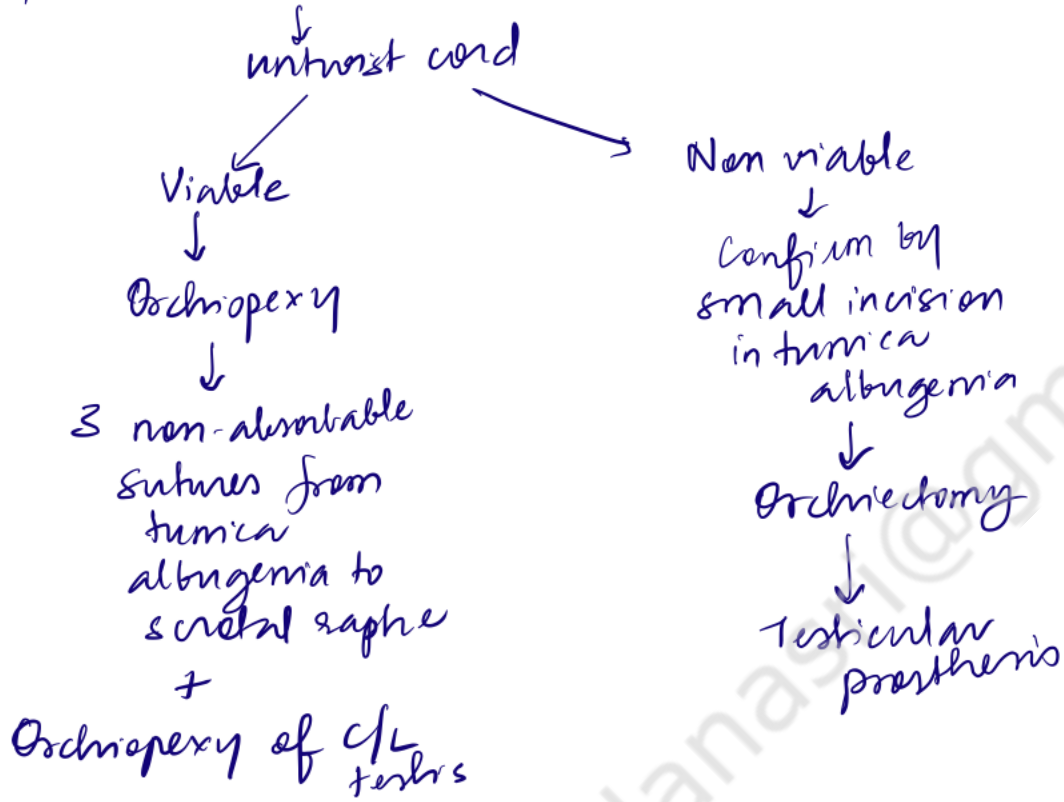 untwist cord
Viable
↓
Orchiopexy
↓
3 non-absorbable
sutures from
tunica
albugenia to
scrotal raphe
+
Orchiopexy of C/L
testis
Non viable
↓
Confirm by
small incision
in tunica
albugenia
↓
Orchiectomy
↓
Testicular
prosthesis
anasri@gm